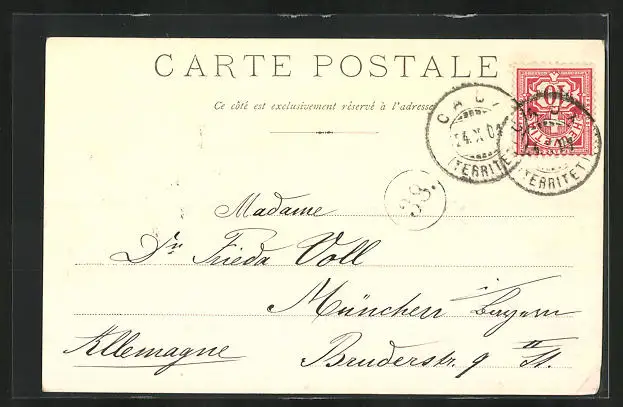 CARTE POSTALE
Ce côté est exclusivement réservé à l'adresse
10
CAU
24.X.01
(TERRITET)
(TERRITET)
38.
Madame
Dr Frieda Voll
München Bayern
Allemagne
Bruderstr. 9 II St.